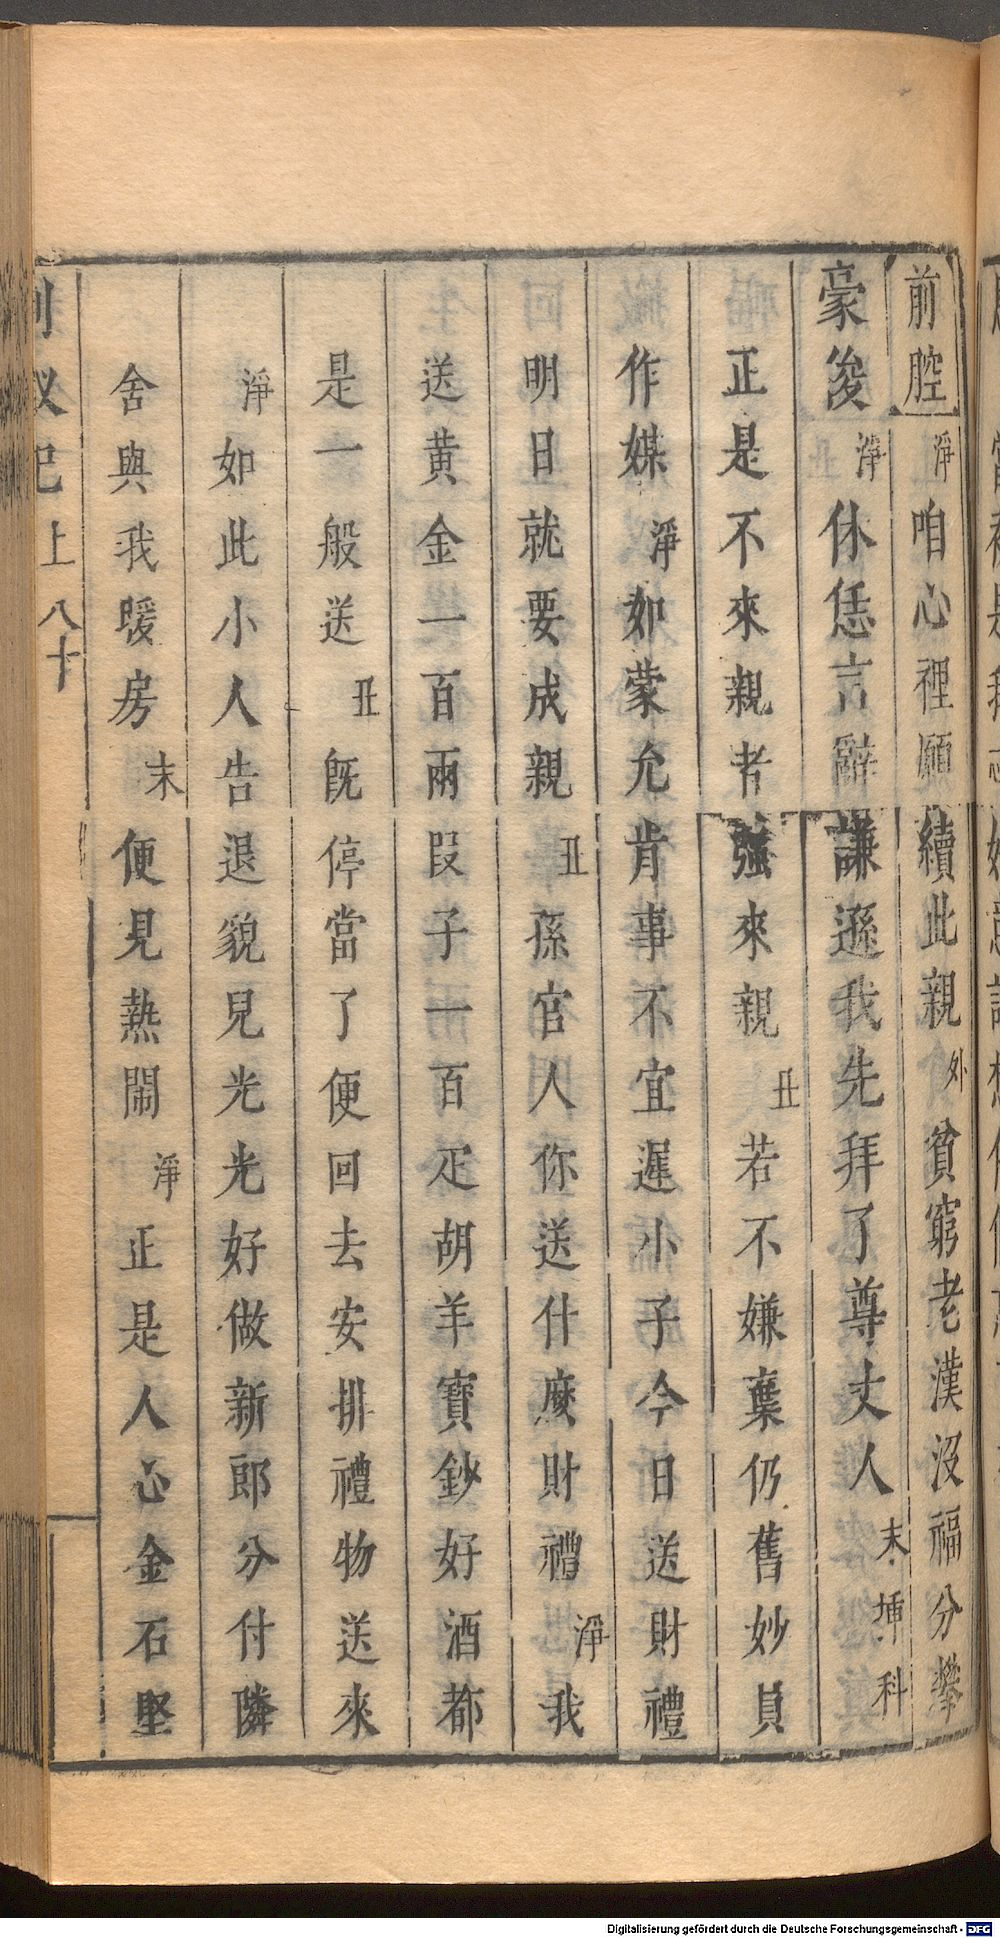 前腔 淨 咱心裡願續此親 外 貧窮老漢沒福分攀
豪俊 淨 休恁言辭謙遜我先拜了尊丈人 末 挿 科
正是不來親者強來親 丑 若不嫌棄仍舊妙員
作媒 淨 如蒙允肯事不宜遲小子今日送財禮
明日就要成親 丑 孫官人你送什麼財禮 淨 我
送黃金一百兩段子一百疋胡羊寶鈔好酒都
是一般送 丑 既停當了便回去安排禮物送來
淨 如此小人告退貌見光光好做新郎分付隣
舍與我暖房 末 便見熱鬧 淨 正是人心金石堅
上 八十
Digitalisierung gefördert durch die Deutsche Forschungsgemeinschaft - DFG